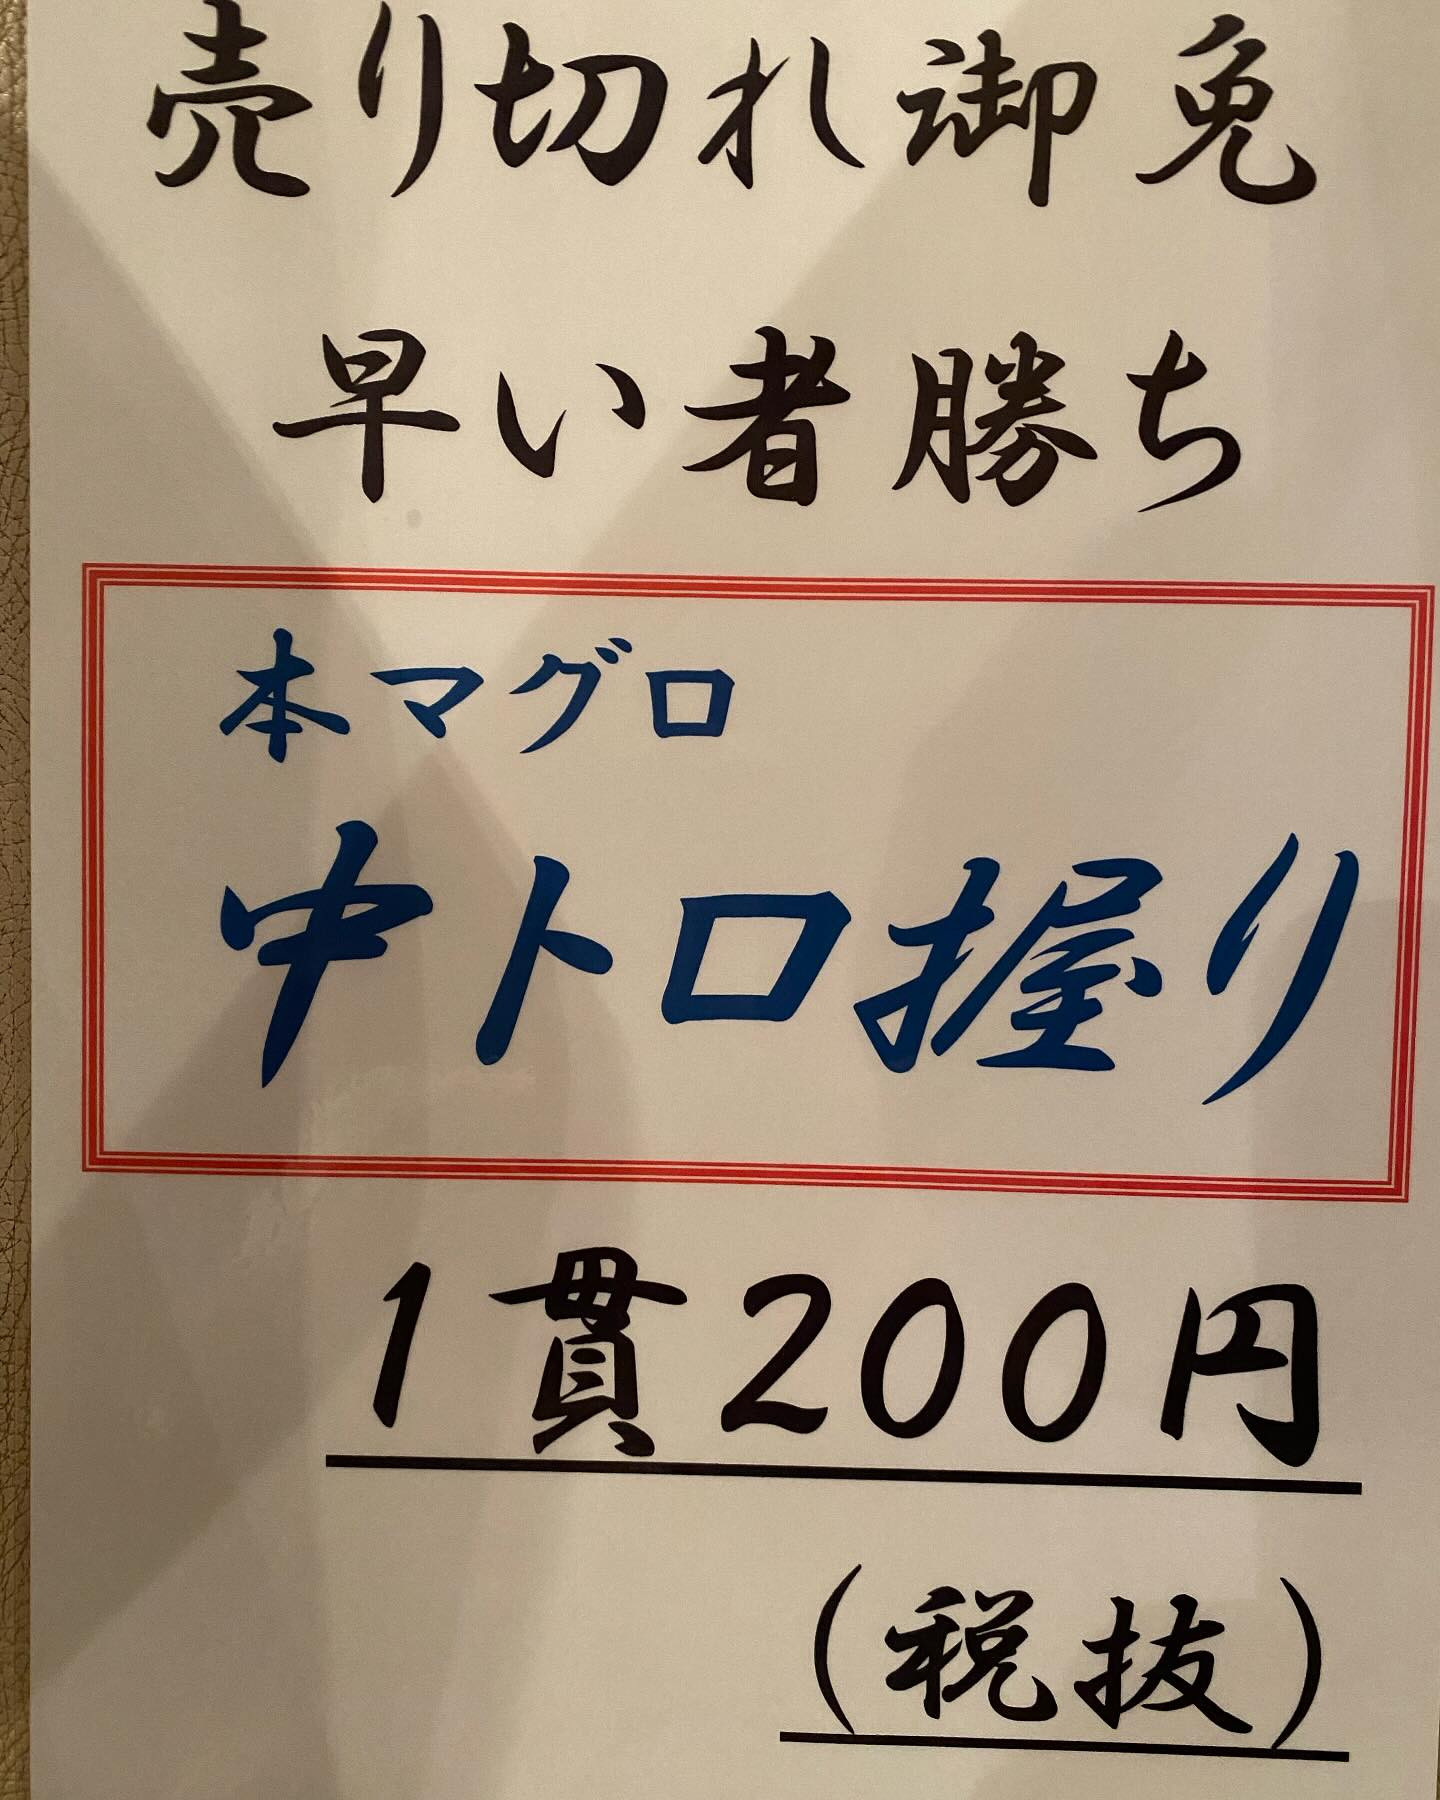 売り切れ御免
早い者勝ち
本マグロ
中トロ握り
1貫200円
(税抜)